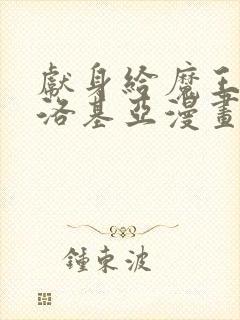 獻身給魔王
洛基亞漫畫
鍾東波